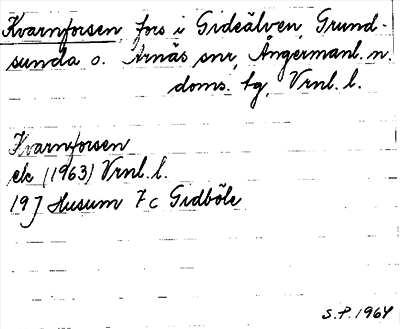 Kvarnforsen, fors i Gideälven, Grund-
sunda o. Arnäs snr, Ångermanl. n.
doms. tg, Vrnl. l.
Kvarnforsen
ek (1963) Vrnl. l.
19 J Husum 7c Gidböle
S.P. 1964